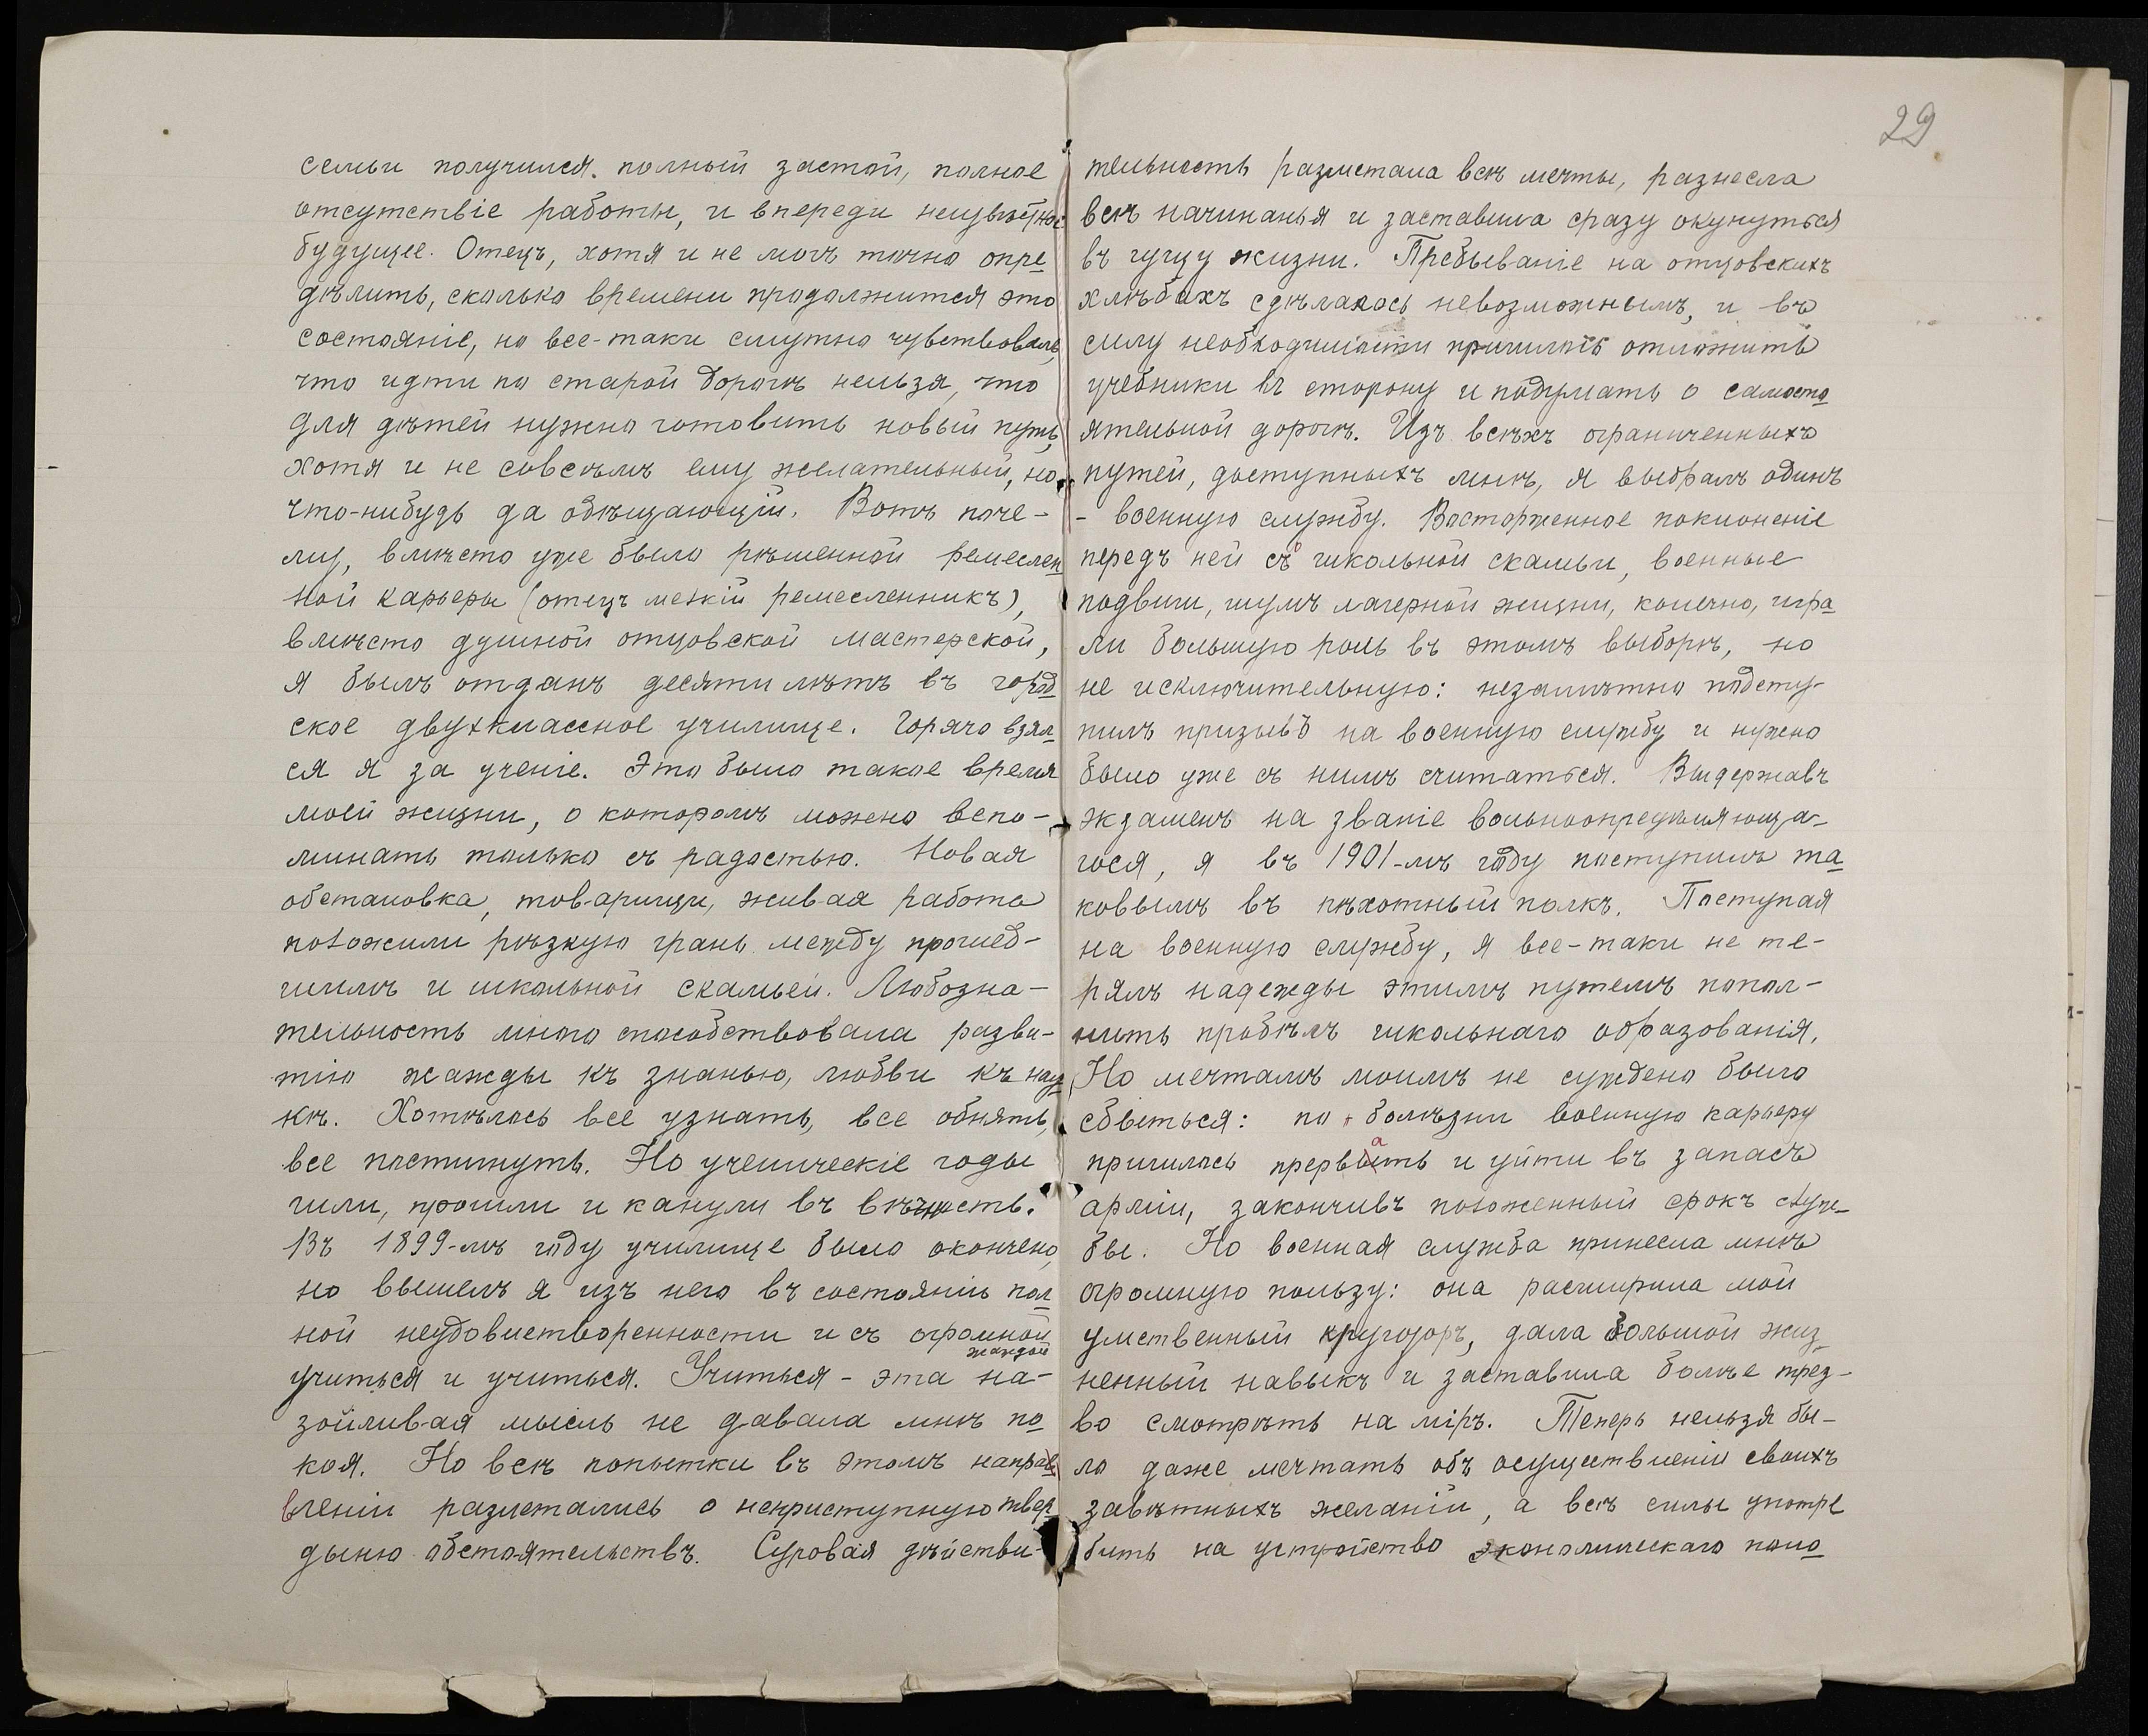 семьи получился полный застой, полное
отсутствіе работы, и впереди неизвѣстное
будущее. Отецъ, хотя и не могъ точно опре
дѣлить, сколько времени продолжится это
состояніе, но все-таки смутно чувствовалъ,
что идти по старой дорогѣ нельзя, что
для дѣтей нужно готовить новый путь,
хотя и не совсѣмъ ему желательный, но
что-нибудь да обѣщающій. Вотъ поче-
му, вмѣсто уже было рѣшенной ремеслен
ной карьеры (отецъ мелкій ремесленникъ),
вмѣсто душной отцовской мастерской,
я былъ отданъ десяти лѣтъ въ город
ское двухклассное училище. Горячо взял
ся я за ученіе. Это было такое время
моей жизни, о которомъ можно вспо-
минать только съ радостью. Новая
обстановка, товарищи, живая работа
положили рѣзкую грань между прошед-
шимъ и школьной скамьей. Любозна-
тельность много способствовала разви-
тію жажды къ знанью, любви къ нау
кѣ. Хотѣлось все узнать, все обнять,
все постигнуть. Но ученическіе годы
шли, прошли и канули въ вѣчность.
Въ 1899-мъ году училище было окончено,
но вышелъ я изъ него въ состояніи пол
ной неудовлетворенности и съ огромной
жаждой
учиться и учиться. Учиться - эта на-
зойливая мысль не давала мнѣ по
коя. Но всѣ попытки въ этомъ направ
вленіи разметались о неприступную твер
дыню обстоятельствъ. Суровая дѣйстви-
29
тельность разметала всѣ мечты, разнесла
всѣ начинанья и заставила сразу окунуться
въ гущу жизни. Пребываніе на отцовскихъ
хлѣбахъ сдѣлалось невозможнымъ, и въ
силу необходимости пришлось отложить
учебники въ сторону и подумать о самосто
ятельной дорогѣ. Изъ всѣхъ ограниченныхъ
путей, доступныхъ мнѣ, я выбралъ одинъ
- военную службу. Восторженное поклоненіе
передъ ней съ школьной скамьи, военные
подвиги, шумъ лагерной жизни, конечно, игра
ли большую роль въ этомъ выборѣ, но
не исключительную: незамѣтно подсту-
пилъ призывъ на военную службу и нужно
было уже съ нимъ считаться. Выдержавъ
экзаменъ на званіе вольноопредѣляюща-
гося, я въ 1901-мъ году поступилъ та
ковымъ въ пѣхотный полкъ. Поступая
на военную службу, я все-таки не те-
рялъ надежды этимъ путемъ попол-
нить пробѣлъ школьнаго образованія.
Но мечтамъ моимъ не суждено было
сбыться: по болѣзни военную карьеру
пришлось прервать и уйти въ запасъ
арміи, закончивъ положенный срокъ служ
бы. Но военная служба принесла мнѣ
огромную пользу: она расширила мой
умственный кругозоръ, дала большой жиз
ненный навыкъ и заставила болѣе трез-
во смотрѣть на міръ. Теперь нельзя бы-
ло даже мечтать объ осуществленіи своихъ
завѣтныхъ желаній, а всѣ силы употре
бить на устройство экономическаго поло